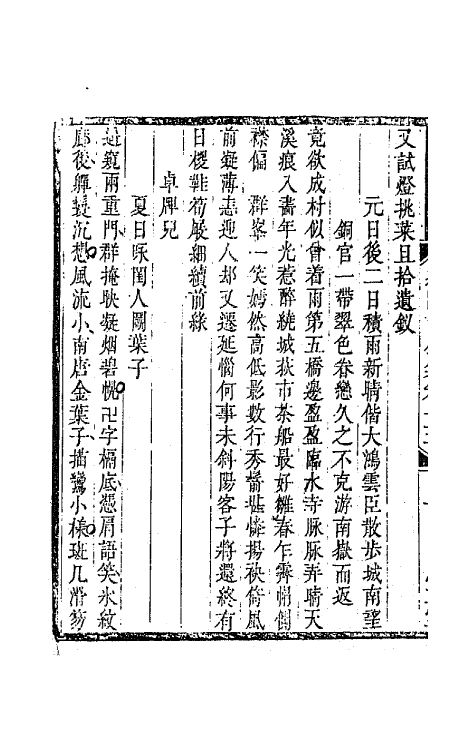 又試燈挑菜且拾遺釵
元日後二日積雨新晴偕大鴻雲臣散步城南望
銅官一帶翠色眷戀久之不克游南嶽而返
竟欲成村似曾着雨第五橋邊盈盈臨水寺脉脉弄晴天
溪痕入畫年光惹醉繞城荻市茶船最好雛春乍霽悄倒
襟偏　群峯一笑嫣然高低影數行秀鬢堪憐揚袂倚風
前凝薄恚迎人却又遷延惱何事未斜陽客子將還終有
日椶鞋筍屐細續前緣
卓牌兒
夏日咏閨人鬭葉子
兩重門群掩映凝烟碧幌卍字槅底憑肩語笑氷紋
廊後嚲髮沉愁風流小南唐金葉子描鸞小様斑几滑笏